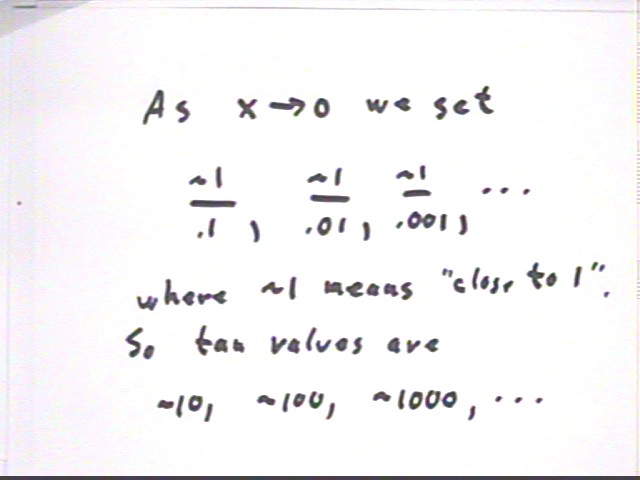 As x→0 we set
~1/.1, ~1/.01, ~1/.001, ...
where ~1 means "close to 1".
So tan values are
~10, ~100, ~1000, ...